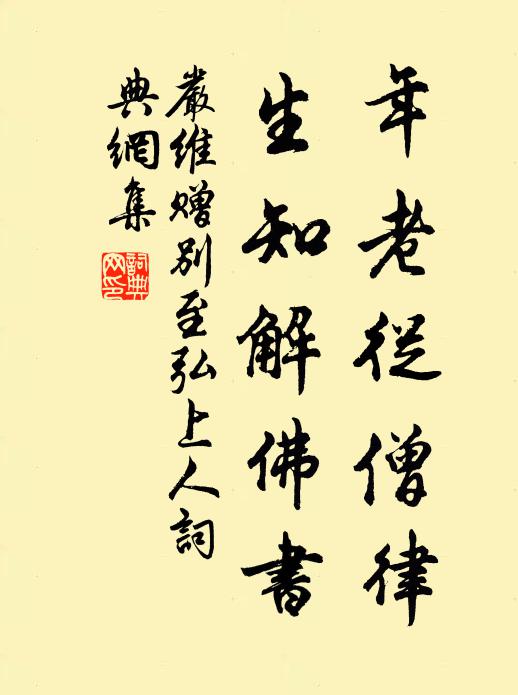 年老從僧律
生知解佛書
嚴維赠別至弘上人詞
典網集
詞典网印